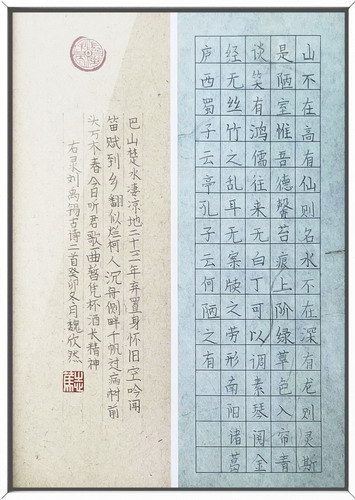 山不在高有仙则名水不在深有龙则灵斯
是陋室惟吾德馨苔痕上阶绿草色入帘青
谈笑有鸿儒往来无白丁可以调素琴阅金
经无丝竹之乱耳无案牍之劳形南阳诸葛
庐西蜀子云亭孔子云何陋之有
巴山楚水凄凉地二十三年弃置身怀旧空吟闻
笛赋到乡翻似烂柯人沉舟侧畔千帆过病树前
头万木春今日听君歌曲暂凭杯酒长精神
右录刘禹锡古诗二首癸卯冬月魏欣然